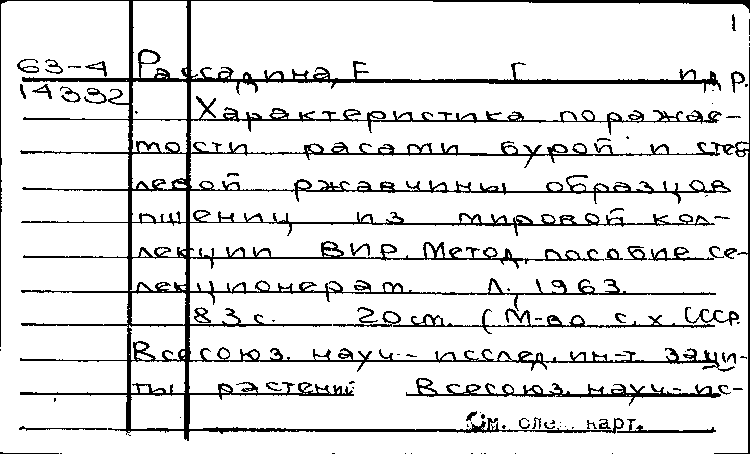 1
63-4 Рассадина, Е Г и др.
14332 Характеристика поражае-
мости расами бурой и стеб
левой ржавчины образцов
пшениц из мировой кол-
лекции ВИР. Метод. пособие се-
лекционерам. Л., 1963.
83 с. 20 см. (М-во с. х. СССР.
Всесоюз. науч.- исслед. ин-т защи-
ты растений Всесоюз. науч.- ис-
См. след. карт.